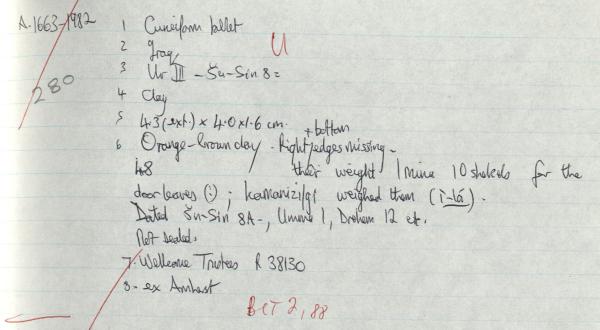 A.1663-1982
280
1 Cuneiform tablet
U
2 Iraq
3 Ur III - Šu-Sin 8 =
4 Clay
5 4.3 (ext.) × 4.0 × 1.6 cm.
+ bottom
6 Orange-brown clay. Right edges missing.
their weight 1 mina 10 shekels for the
door leaves (:) ; weighed them (ì-lá).
Dated Šu-Sin 8A-, Umma 1, Drehem 12 etc.
Not sealed.
7. Wellcome Trustees R 38130
8. ex Amherst
BCT 2, 88